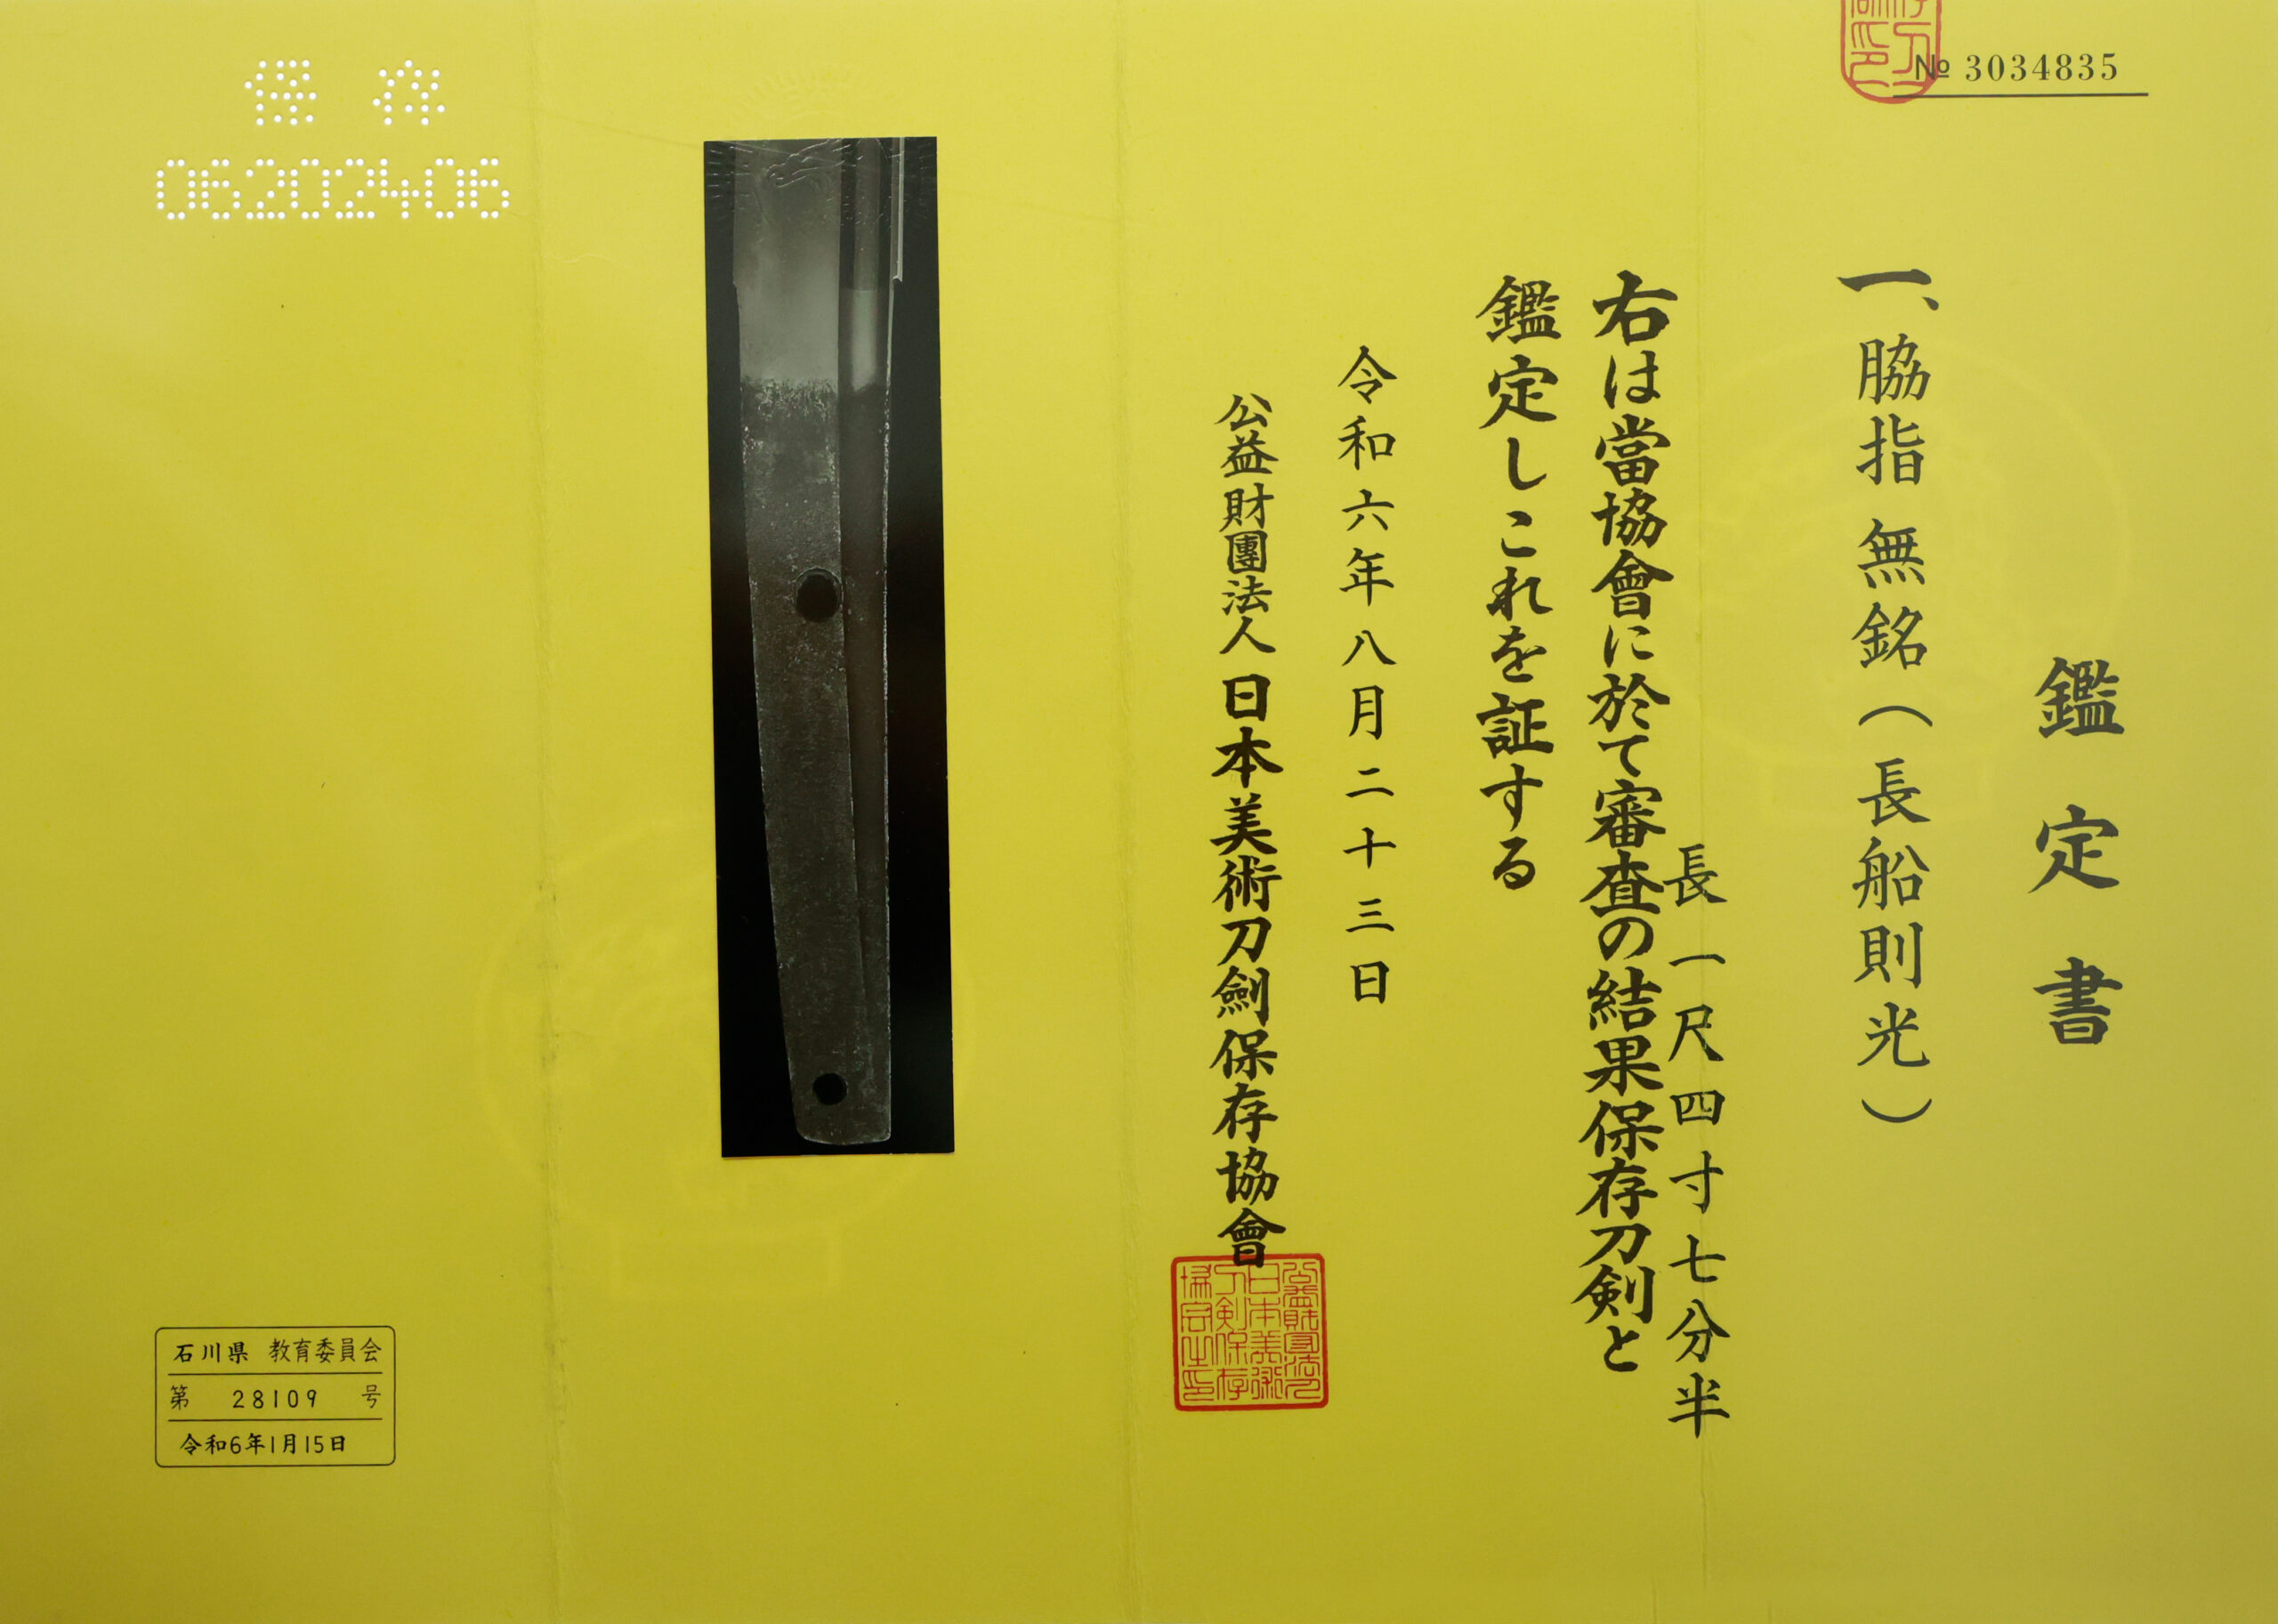 № 3034835
鑑定書
一、脇指 無銘(長船則光)
長 一尺四寸七分半
右は當協會に於て審査の結果保存刀剣と
鑑定しこれを証する
令和六年八月二十三日
公益財團法人 日本美術刀劍保存協會
保存
06202406
石川県 教育委員会
第 28109 号
令和6年1月15日